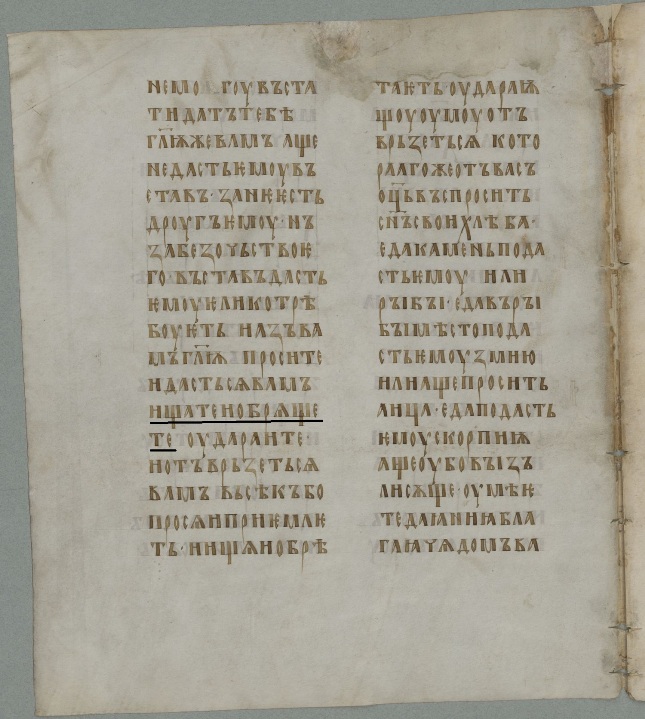 немо гоу въста
ти датътебѣ
гл҃ѭжевамъ аще
недастьѥмоувъ
ставъ· занеѥсть
дроугъѥмоу· нъ
забезоуьствоѥ
го· въставъдасть
ѥмоуѥликотрѣ
боуѥть· назъва
мъгл҃ѭ· просите
идастьсѧвамъ
ищатеиобрѧще
те· оударѧите·
иотъврьзетьсѧ
вамъ· вьсѣкъбо
просѧиприѥмлѥ
ть· иищѧиобрѣ
таѥть· оударѧѭ
щоуоумоуотъ
врьзетьсѧ· кото
рааго​жеотъвасъ
оц҃ѣвъспросить
сн҃ъсвоихлѣба·
едакаменьпода
стьѥмоу· или
рыбꙑ· едавърꙑ
бꙑмѣстопода
стьѥмоузмию
илиащепросить
аица· едаподасть
ѥмоускорпиѭ
ащеоубовꙑзъ
лисѫще· оумѣѥ
тедаꙗниꙗбла
гаꙗчѧдомъва